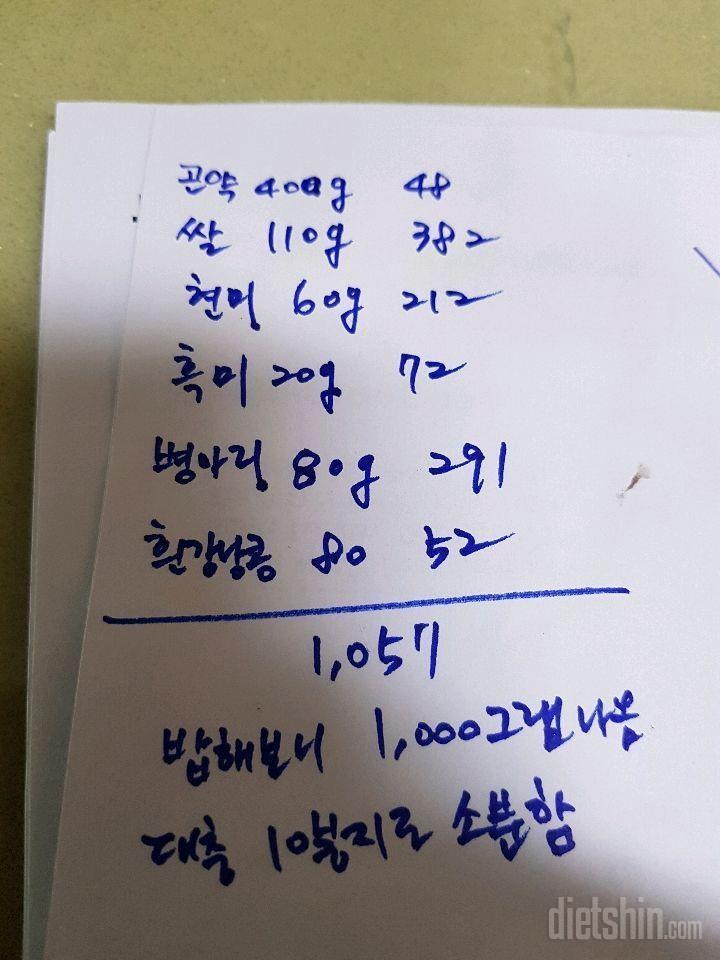 곤약 400g 48
쌀 110g 382
현미 60g 212
흑미 20g 72
병아리 80g 291
흰강낭콩 80 52
1,057
밥해보니 1,000그램나옴
대충 10봉지로 소분함
dietshin.com